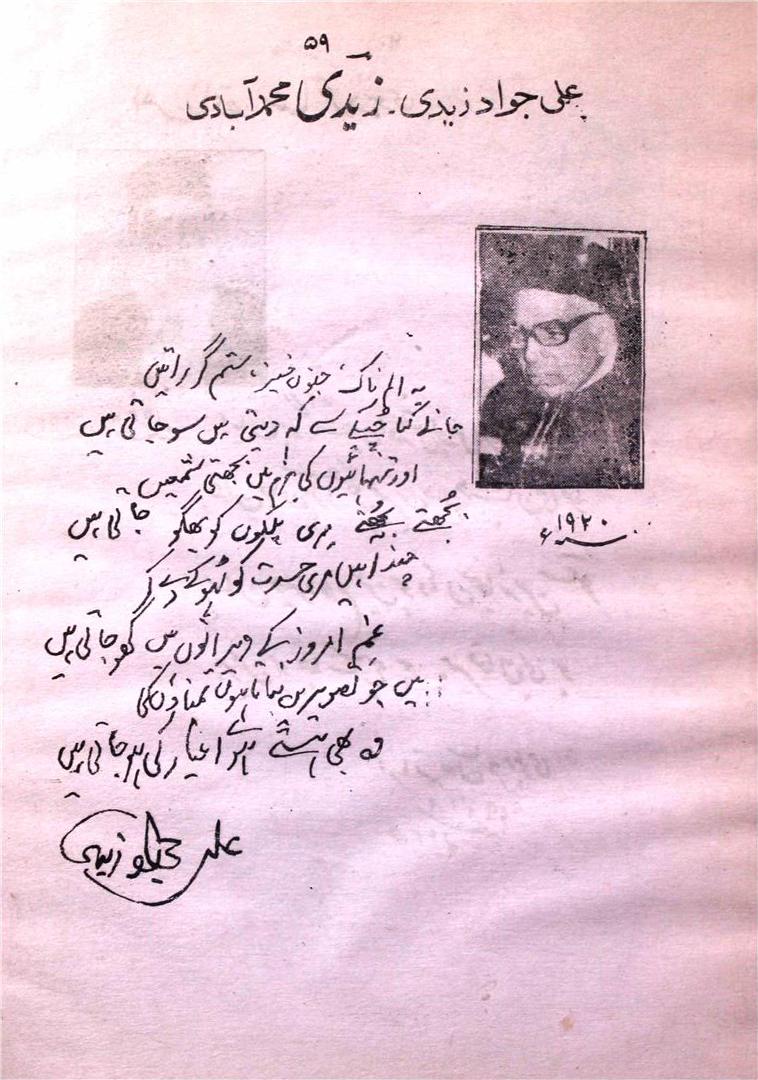 ۵۹
علی جواد زیدی۔ زیدی محمدآبادی
یہ الم ناک، جنوں خیز، ستم گر راتیں
جانے کیا چپکے سے کہ دیتی ہیں سو جاتی ہیں
اور تنہائیوں کی بزم میں بجھتی شمعیں
بُجھتے بُجھتے مری پلکوں کو بھگو جاتی ہیں
۱۹۲۰ء
چند مری حسرت کو لہو دے کر
غمِ امروز کے ویرانوں میں کھو جاتی ہیں
ہیں جو تصویریں تمناؤں کی
وہ بھی اغیار کی ہو جاتی ہیں
علی جواد زیدی